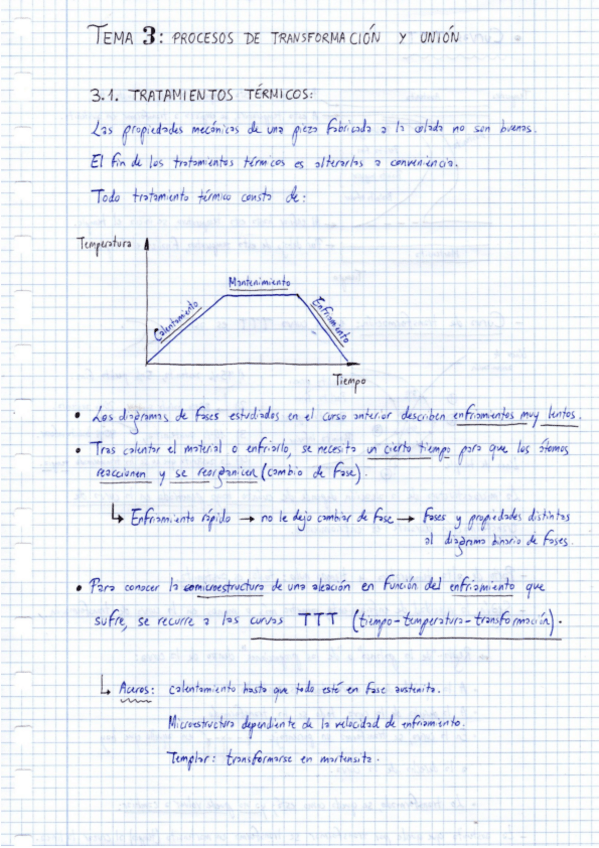 TEMA 3: PROCESOS DE TRANSFORMACIÓN Y UNIÓN
3.1. TRATAMIENTOS TÉRMICOS:
Las propiedades mecánicas de una pieza fabricada a la colada no son buenas.
El fin de los tratamientos térmicos es alterarlas a conveniencia.
Todo tratamiento térmico consta de:
Temperatura
Mantenimiento
Calentamiento
Enfriamiento
Tiempo
• Los diagramas de fases estudiados en el curso anterior describen enfriamientos muy lentos.
• Tras calentar el material o enfriarlo, se necesita un cierto tiempo para que los átomos
reaccionen y se reorganicen (cambio de fase).
↳ Enfriamiento rápido → no le dejo cambiar de fase → fases y propiedades distintas
al diagrama binario de fases.
• Para conocer la microestructura de una aleación en función del enfriamiento que
sufre, se recurre a las curvas TTT (tiempo-temperatura-transformación).
↳ Aceros: calentamiento hasta que todo esté en fase austenita.
Microestructura dependiente de la velocidad de enfriamiento.
Templar: transformarse en martensita.